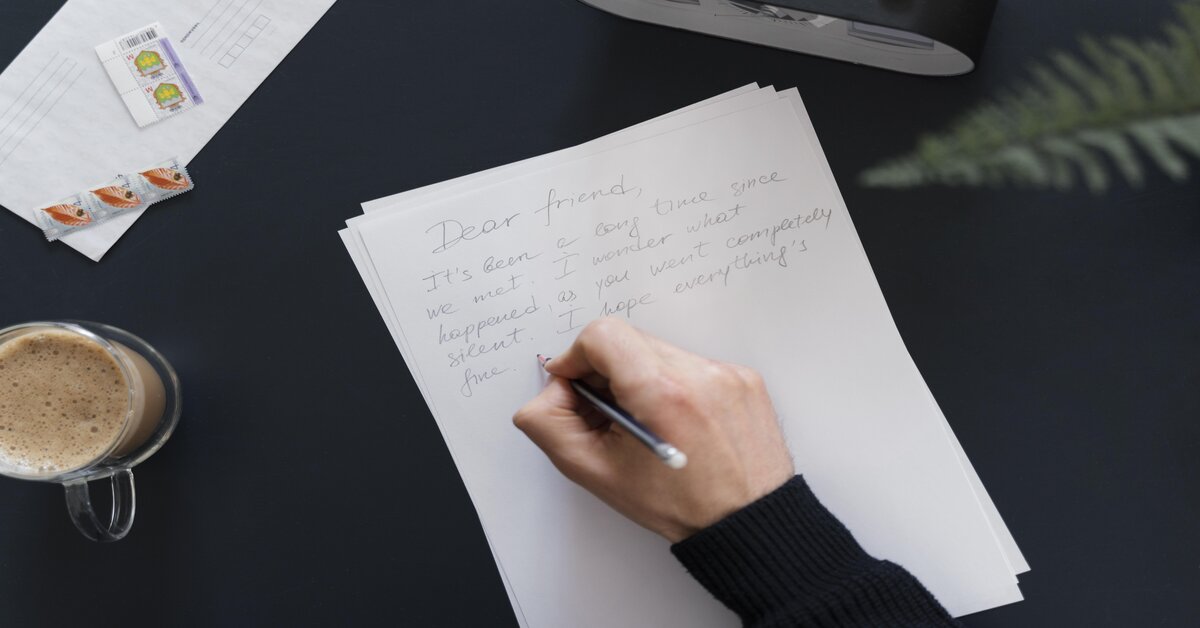 Dear friend,
It's been a long time since
we met. I wonder what
happened, as you went completely
silent. I hope everything's
fine.